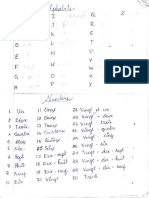 Alphabets
I Q
J R
S
T
D L U
E M V
F N W
G O X
H P Y
Numbers
1. Un 11. Onze 21. Vingt et un
2. Deux 12. Douze 22. Vingt - deux
3. Trois 13. Treize 23. Vingt - trois
4. Quatre 14. Quatorze 24. Vingt - quatre
5. Cinq 15. Quinze 25. Vingt - cinq
6. Six 16. Seize 26. Vingt - six
7. Sept 17. Dix - sept 27. Vingt - sept
8. Huit 18. Dix - huit 28. Vingt - huit
9. Neuf 19. Dix - neuf 29. Vingt - neuf
10. Dix 20. Vingt 30. Trente